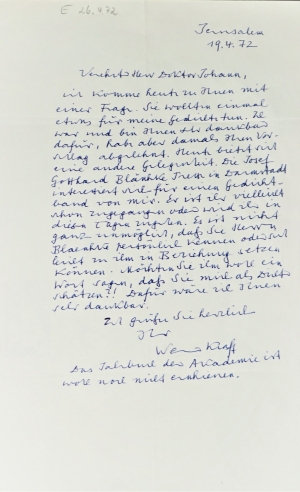 E 26.4.72
Jerusalem
19.4.72
Verehrter Herr Doktor Johann,
ich komme heute zu Ihnen mit
einer Frage. Sie wollten einmal
etwas für meine Gedichte tun. Ich
war und bin Ihnen sehr dankbar
dafür, habe aber damals Ihren Vor-
schlag abgelehnt. Heute bietet sich
eine andere Gelegenheit. Die Josef
Gotthard Bläschke Presse in Darmstadt
interessiert sich für einen Gedicht-
band von mir. Es ist ihr vielleicht
schon zugegangen oder wird ihr in
diesen Tagen zugehen. Es ist nicht
ganz unmöglich, daß Sie Herrn
Blaeschke persönlich kennen oder sich
leicht zu ihm in Beziehung setzen
können. Möchten Sie ihm wohl ein
Wort sagen, daß Sie mich als Dichter
schätzen?! Dafür wäre ich Ihnen
sehr dankbar.
Ich grüße Sie herzlich
Ihr
Werner Kraft
Das Jahrbuch der Akademie ist
wohl noch nicht erschienen.